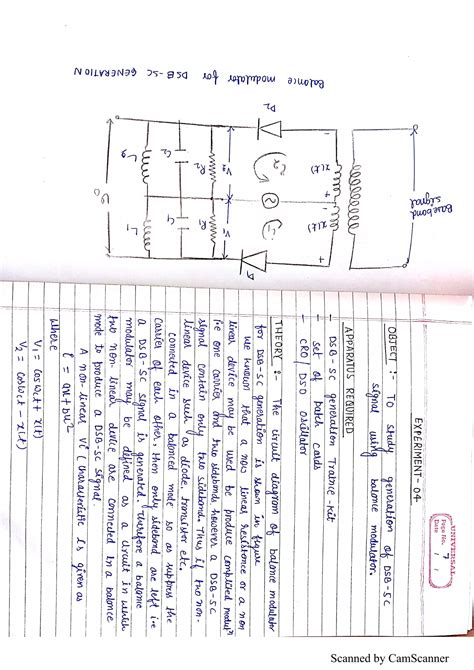 UNIVERSAL
Page No. 7
Date / /
EXPERIMENT-04
OBJECT :- To study generation of DSB-SC
signal using balance modulator.
APPARATUS REQUIRED
DSB-SC generation Trainee-Kit
set of patch cords
CRO/DSO oscillator
THEORY :- The circuit diagram of balance modulator
for DSB-SC generation is shown in figure
we known that a non linear resistance or a non
linear device may be used be produce complited modulⁿ
i.e one carrier and two sidebands however a DSB-SC
signal contain only two sideband. Thus if two non-
linear device such as diode, transistor etc.
connected in a balanced mode so as suppress the
carrier of each other, then only sideband are left i.e
a DSB-SC signal is generated. Therefore a balance
modulator may be defined as a circuit in which
two non-linear device are connected in a balance
mode to produce a DSB-SC signal.
A non-linear V-i characteristic is given as
i = av + bv²
where
V₁ = cos wct + x(t)
V₂ = cos wct - x(t)
Baseband
signal
x(t)
x(t)
D2
D1
V2
V1
R2
R1
C2
C1
L2
L1
Balance modulator for DSB-SC GENERATION
Scanned by CamScanner